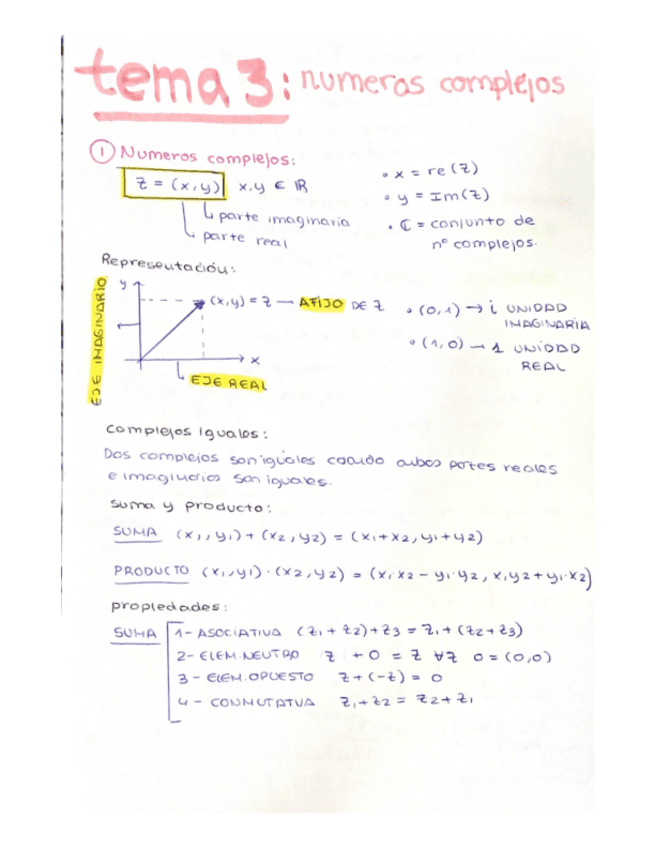 tema 3: numeros complejos
① Numeros complejos:
z = (x,y) x,y ∈ ℝ
parte imaginaria
parte real
• x = re(z)
• y = Im(z)
• ℂ = conjunto de
nº complejos.
Representación:
EJE IMAGINARIO
y
(x,y) = z — AFIJO DE z
x
EJE REAL
• (0,1) → i UNIDAD
IMAGINARIA
• (1,0) → 1 UNIDAD
REAL
complejos iguales:
Dos complejos son iguales cuando ambos partes reales
e imaginarios son iguales.
suma y producto:
SUMA (x₁,y₁)+(x₂,y₂) = (x₁+x₂,y₁+y₂)
PRODUCTO (x₁,y₁)·(x₂,y₂) = (x₁x₂ - y₁y₂, x₁y₂+y₁·x₂)
propiedades:
SUMA 1- ASOCIATIVA (z₁+z₂)+z₃ = z₁+(z₂+z₃)
2- ELEM. NEUTRO z + 0 = z ∀z 0=(0,0)
3- ELEM. OPUESTO z+(-z) = 0
4- CONMUTATIVA z₁+z₂ = z₂+z₁